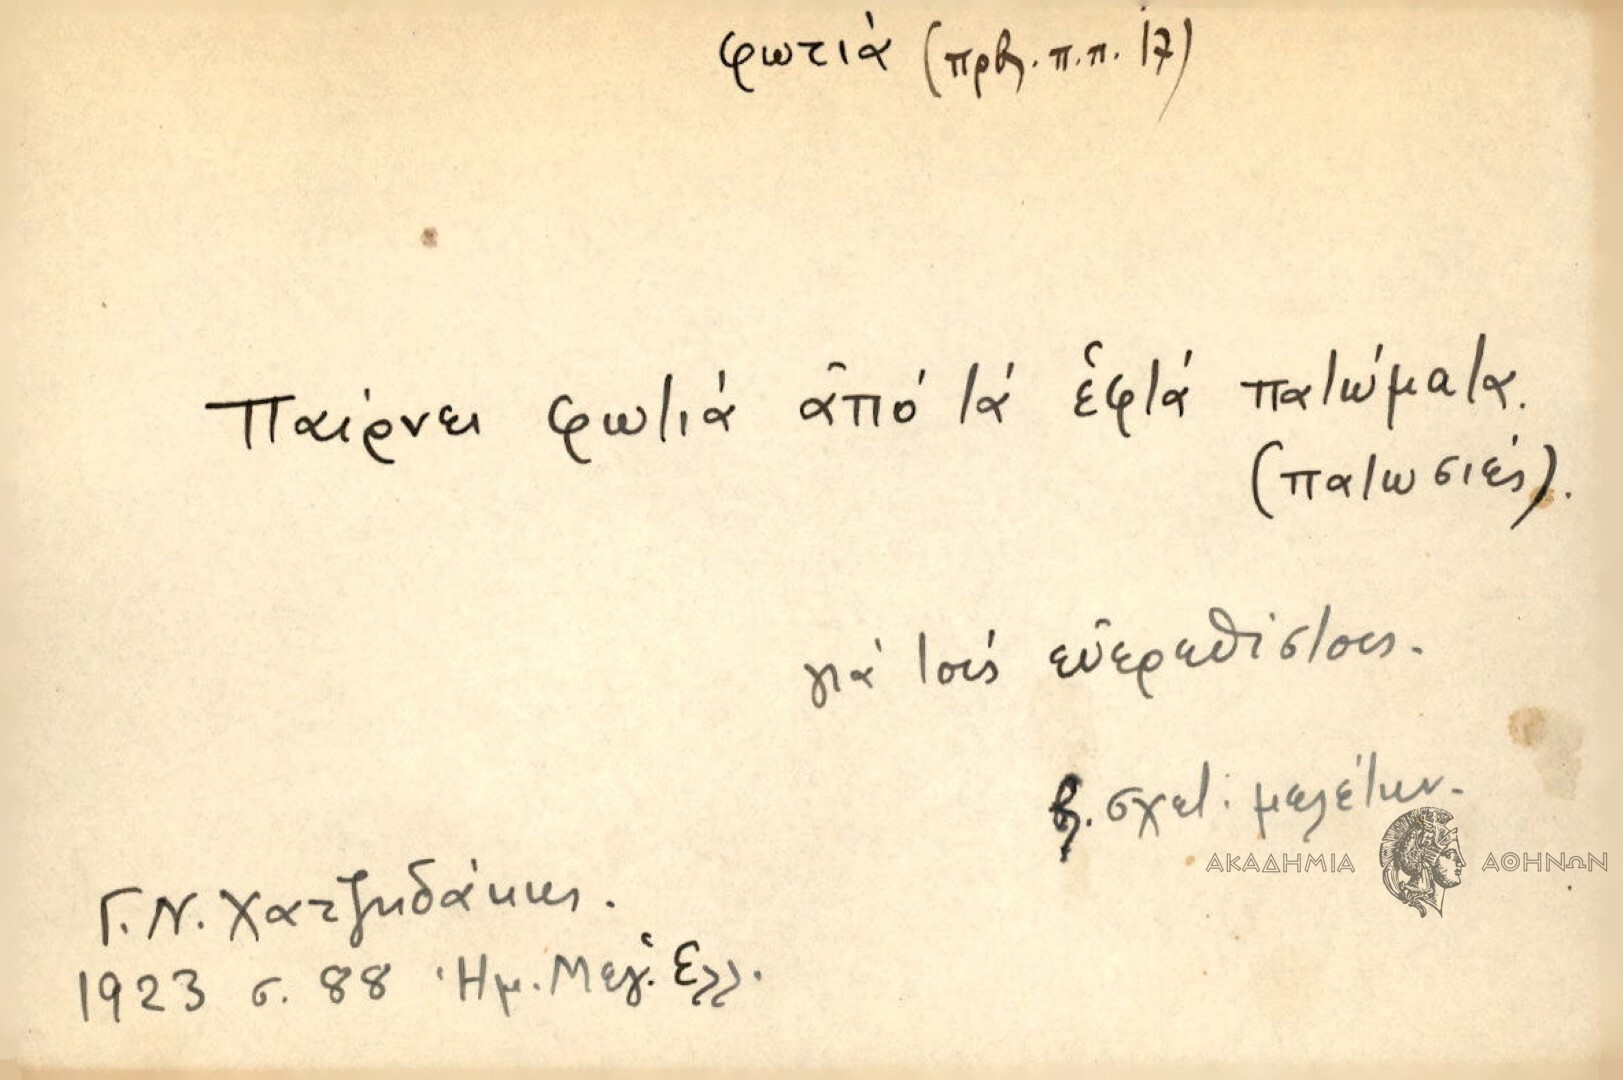 φωτιά (πρβλ. π.π. 17)
Παίρνει φωτιά ἀπό τά ἑφτά πατώματα.
(πατωσιές).
γιά τούς εὐερεθίστους.
βλ. σχετ. μελέτην.
ΑΚΑΔΗΜΙΑ ΑΘΗΝΩΝ
Γ. Ν. Χατζηδάκης.
1923 σ. 88 Ἡμ. Μεγ. Ἑλλ.